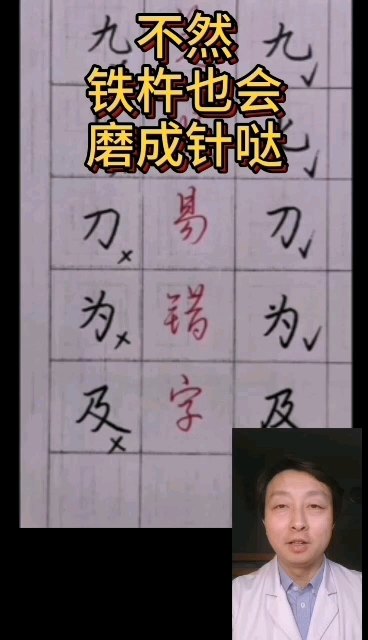 不然
铁杵也会
磨成针哒
九 九
刀 易 刀
为 错 为
及 字 及